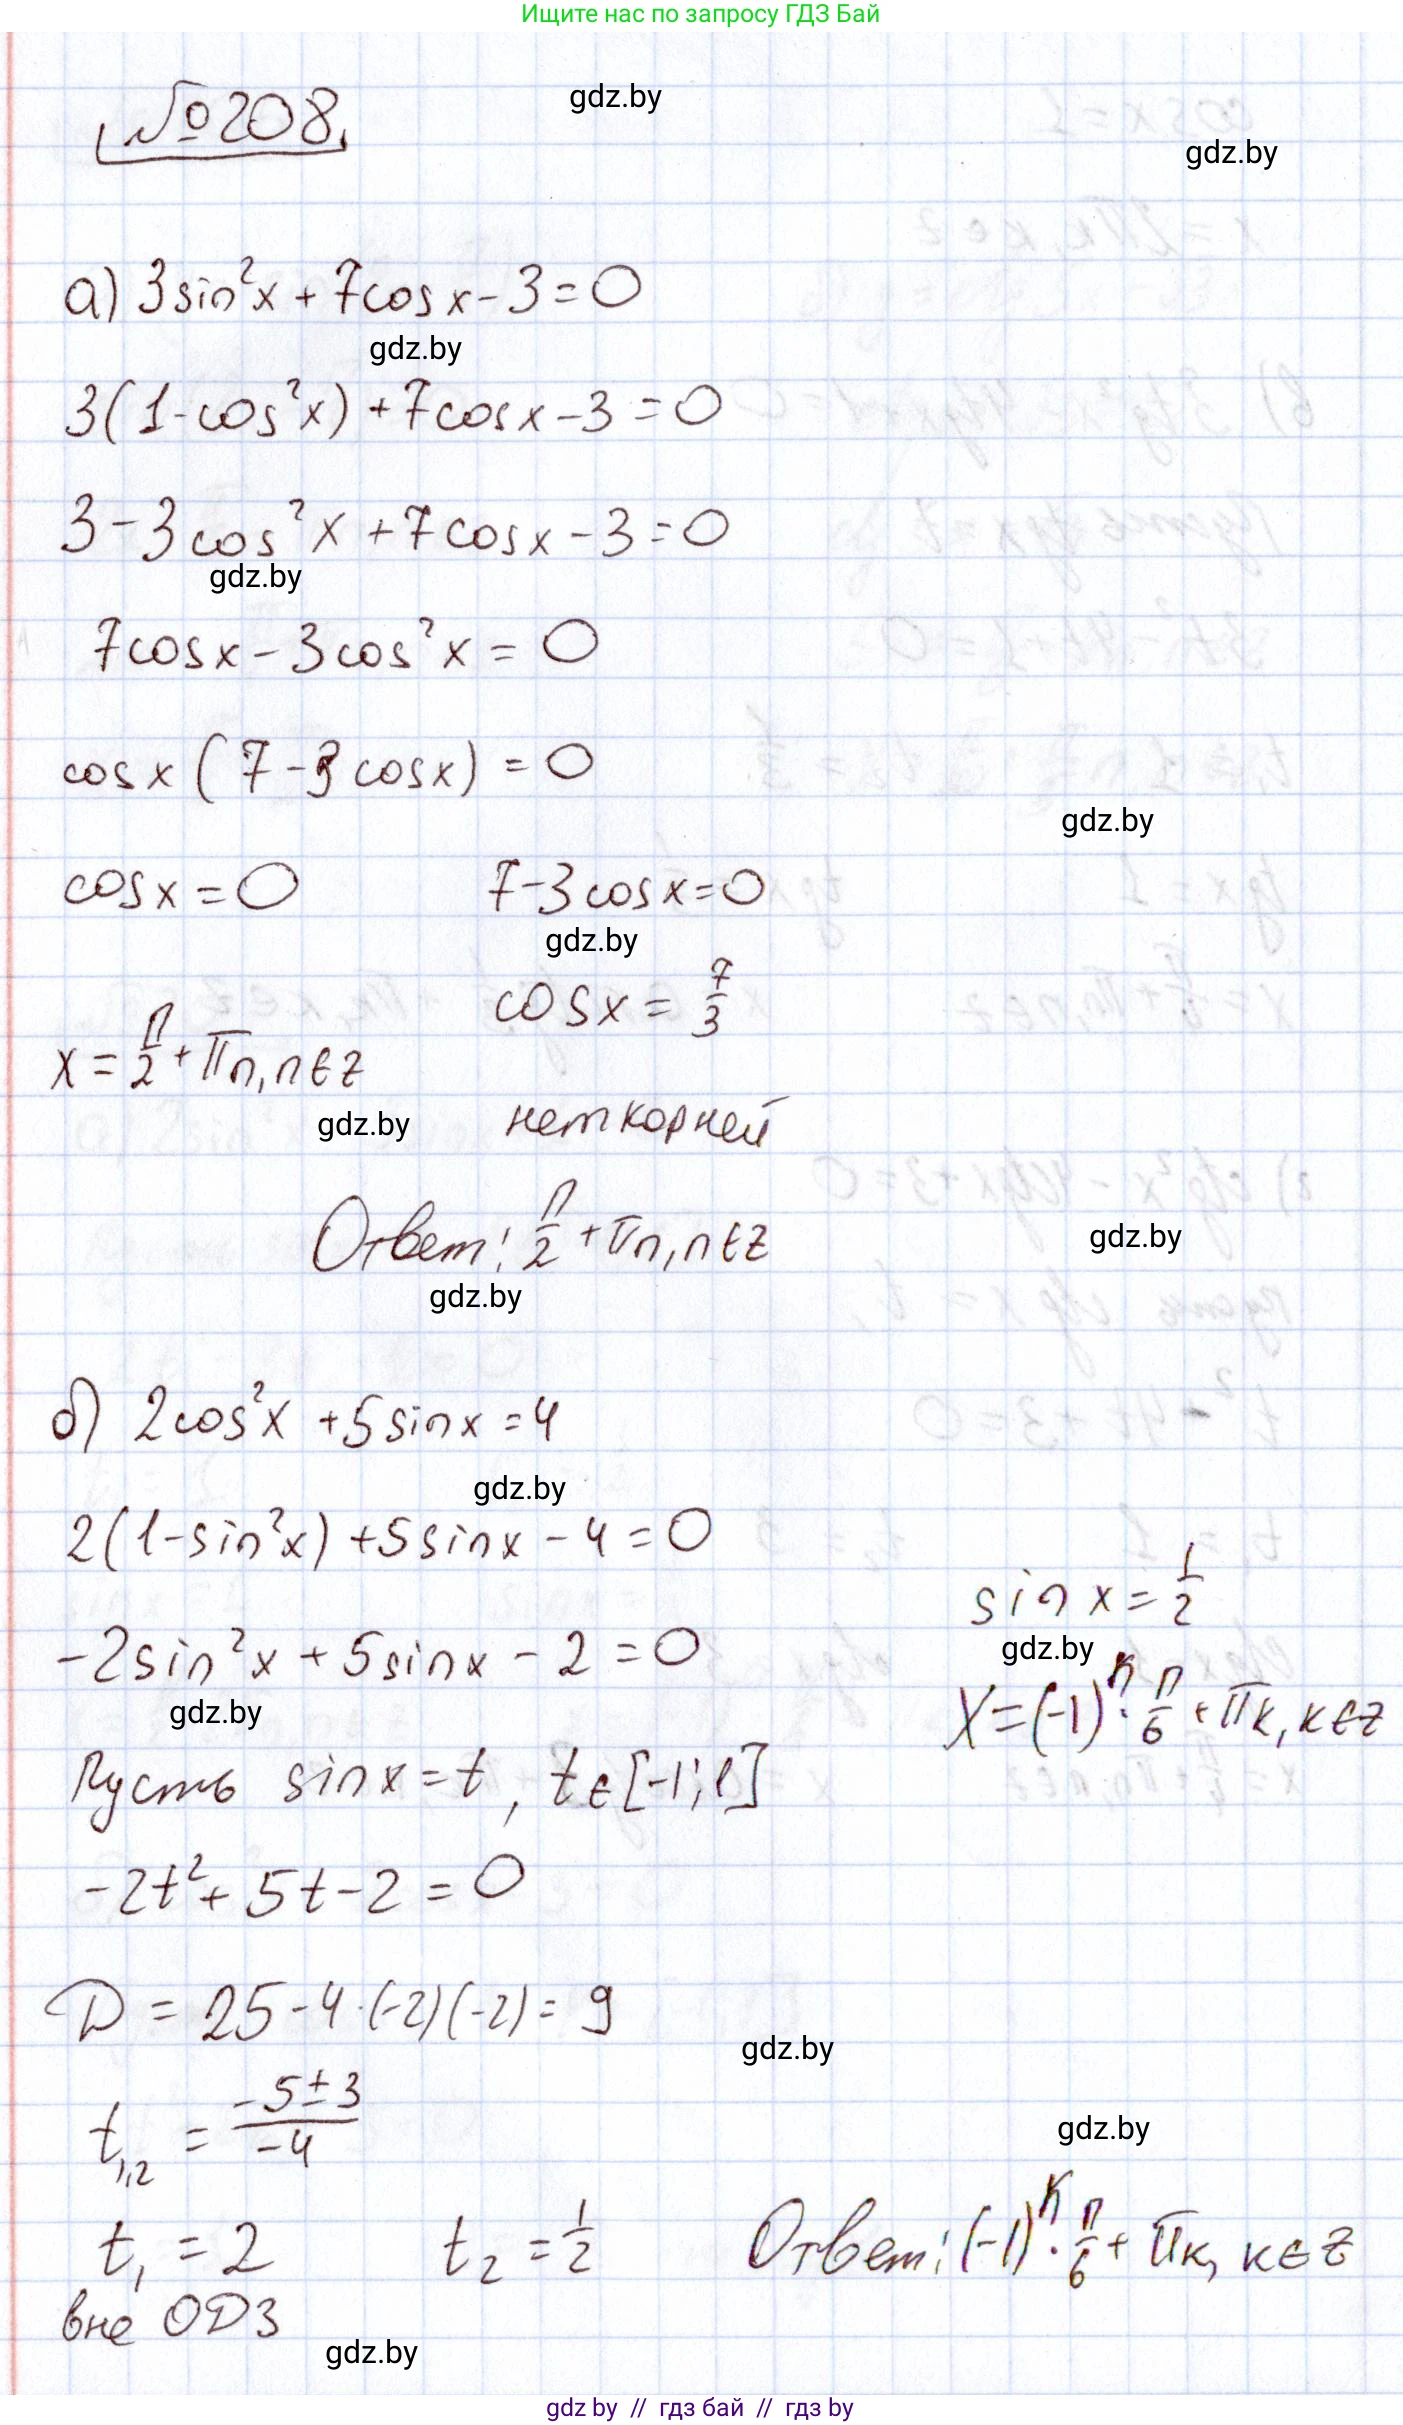 Ищите нас по запросу ГДЗ Бай
№208.
gdz.by
gdz.by
а) 3sin²x + 7cosx - 3 = 0
gdz.by
3(1-cos²x) + 7cosx - 3 = 0
3 - 3cos²x + 7cosx - 3 = 0
gdz.by
7cosx - 3cos²x = 0
cosx (7 - 3cosx) = 0
gdz.by
cosx = 0
7 - 3cosx = 0
gdz.by
cosx = 7/3
x = π/2 + πn, n∈z
gdz.by
нет корней
Ответ: π/2 + πn, n∈z
gdz.by
gdz.by
б) 2cos²x + 5sinx = 4
gdz.by
2(1-sin²x) + 5sinx - 4 = 0
-2sin²x + 5sinx - 2 = 0
gdz.by
sin x = 1/2
gdz.by
x = (-1)ᵏ · π/6 + πk, k∈z
Пусть sinx = t, t∈[-1; 1]
-2t² + 5t - 2 = 0
D = 25 - 4·(-2)(-2) = 9
gdz.by
t₁,₂ = (-5±3)/-4
gdz.by
t₁ = 2
t₂ = 1/2
Ответ: (-1)ᵏ · π/6 + πk, k∈z
вне ОДЗ
gdz.by
gdz by // гдз бай // гдз by